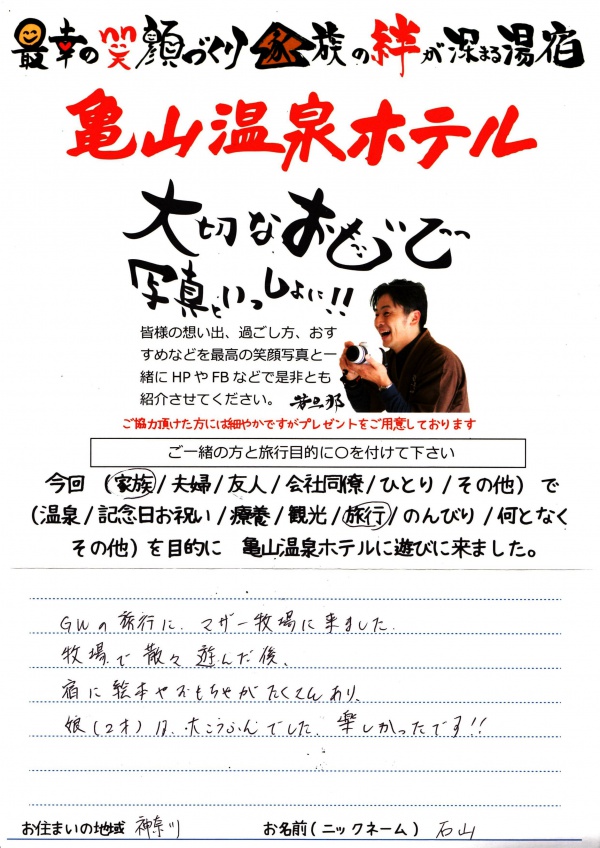 最幸の笑顔づくり家族の絆が深まる湯宿
亀山温泉ホテル
大切なおもいで
写真といっしょに!!
皆様の想い出、過ごし方、おす
すめなどを最高の笑顔写真と一
緒にHPやFBなどで是非とも
紹介させてください。 若旦那
ご協力頂けた方には細やかですがプレゼントをご用意しております
ご一緒の方と旅行目的に○を付けて下さい
今回 (家族/夫婦/友人/会社同僚/ひとり/その他) で
(温泉/記念日お祝い/療養/観光/旅行/のんびり/何となく
その他) を目的に 亀山温泉ホテルに遊びに来ました。
GWの旅行に、マザー牧場に来ました。
牧場で散々遊んだ後、
宿に絵本やおもちゃがたくさんあり、
娘(2才)は、大こうふんでした。楽しかったです!!
お住まいの地域 神奈川 お名前(ニックネーム) 石山